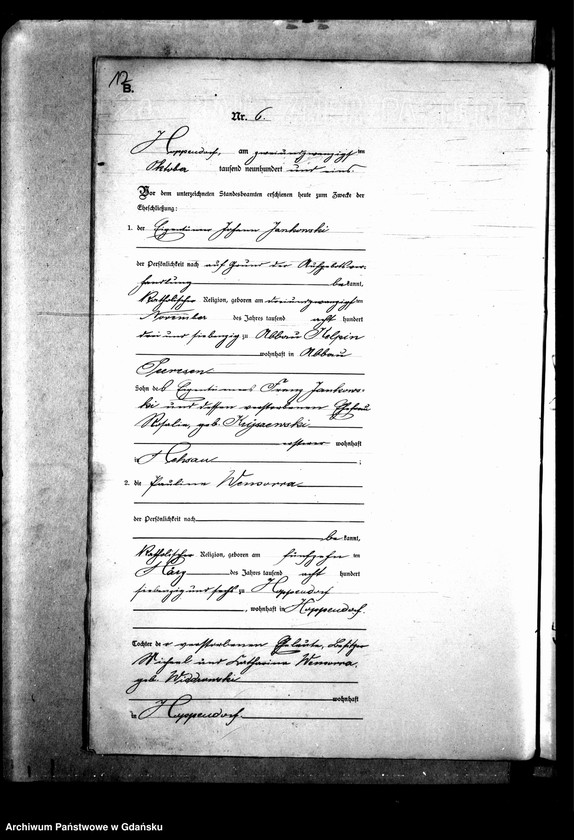 12
B.
Nr. 6.
Hoppendorf, am zweiundzwanzigsten
Oktober tausend neunhundert und eins.
Vor dem unterzeichneten Standesbeamten erschienen heute zum Zwecke der
Eheschließung:
1. der Eigentümer Johann Jankowski
der Persönlichkeit nach auf Grund der Aufgebotsver-
handlung bekannt,
katholischer Religion, geboren am dreiundzwanzigsten
November des Jahres tausend acht hundert
drei und siebenzig zu Abbau
wohnhaft in Abbau
Sohn des Eigentümers Franz Jankows-
ki und dessen verstorbenen Ehefrau
Rosalie, geb.
ersterer wohnhaft
in ;
2. die Pauline Wensorra
der Persönlichkeit nach
bekannt,
katholischer Religion, geboren am fünfzehn ten
März des Jahres tausend acht hundert
siebenzig und sechs zu Hoppendorf
, wohnhaft in Hoppendorf.
Tochter der verstorbenen Eheleute, Besitzer
Michael und Katharina Wensorra,
geb.
wohnhaft
in Hoppendorf
Archiwum Państwowe w Gdańsku